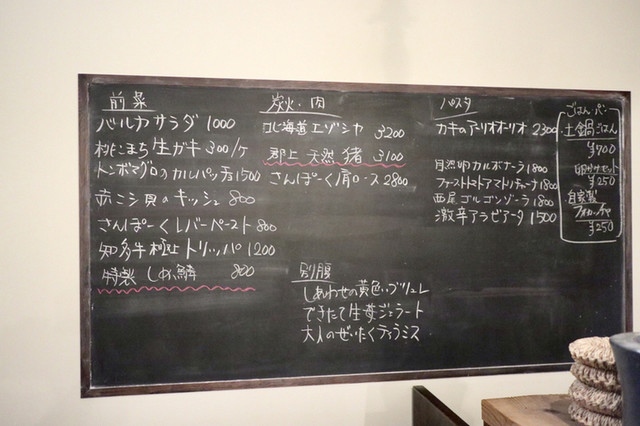 前菜
バルカサラダ 1000
桃こまち生ガキ 300/ヶ
トンボマグロのカルパッチョ 1500
赤ニシ貝のキッシュ 800
さんぽーくレバーペースト 800
知多牛極上トリッパ 1200
特製 しめ鯖 800
炭火・肉
北海道エゾシカ 3200
郡上 天然 猪 3100
さんぽーく肩ロース 2800
別腹
しあわせの黄色いブリュレ
できたて生姜ジェラート
大人のぜいたくティラミス
パスタ
カキのアーリオオーリオ 2300
自然卵カルボナーラ 1800
ファーストトマトアマトリチャーナ 1800
西尾ゴルゴンゾーラ 1800
激辛アラビアータ 1500
ごはん・パン
土鍋ごはん
¥900
卵かけセット
¥250
自家製
フォカッチャ
¥250